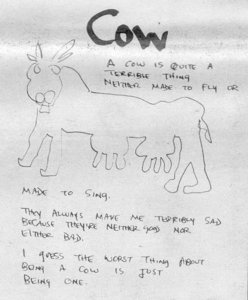 Cow
A COW IS QUITE A
TERRIBLE THING
NEITHER MADE TO FLY OR
MADE TO SING.
THEY ALWAYS MAKE ME TERRIBLY SAD
BECAUSE THEY'RE NEITHER GOOD NOR
EITHER BAD.
I GUESS THE WORST THING ABOUT
BEING A COW IS JUST
BEING ONE.